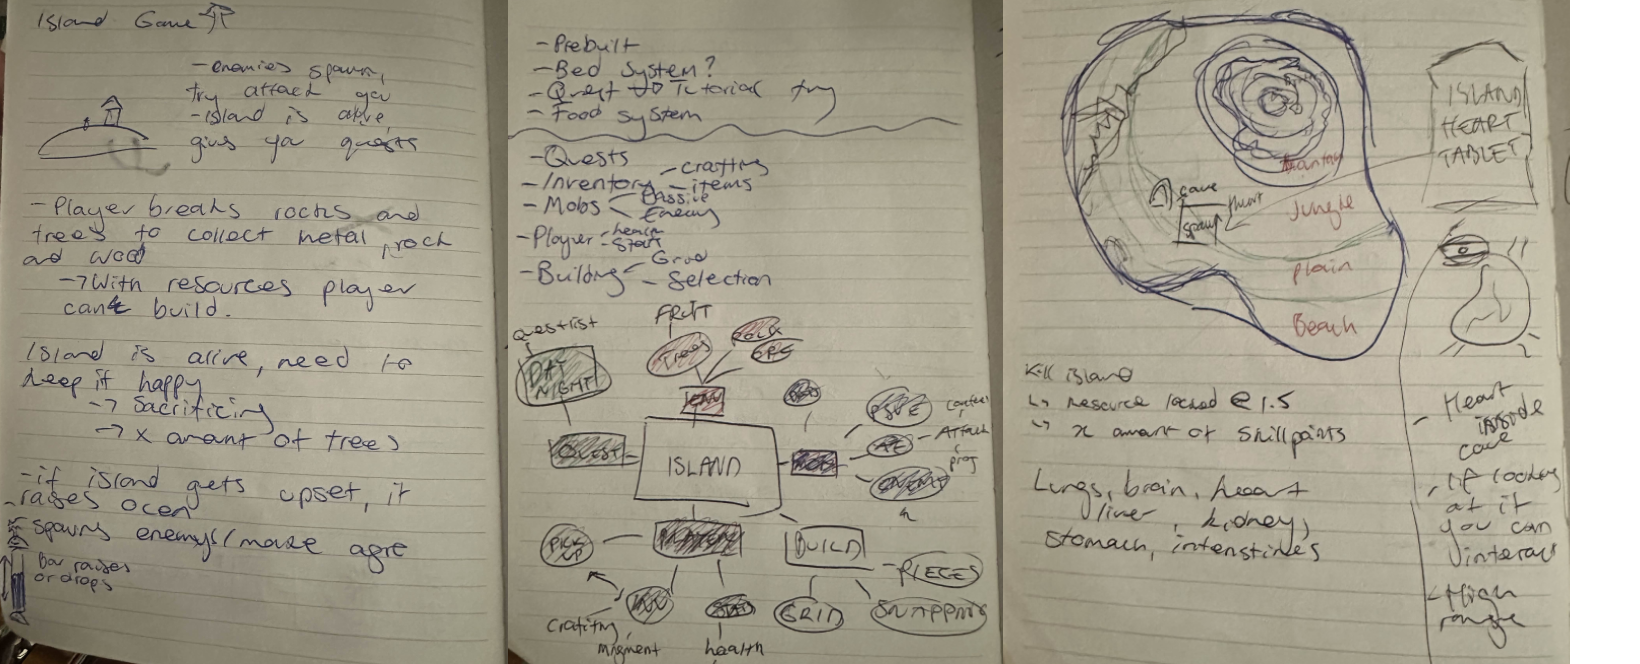 Island Game
- enemies spawn,
try attack you
- island is alive,
gives you quests
- Player breaks rocks and
trees to collect metal, rock
and wood
→ With resources player
can build.
Island is alive, need to
keep it happy
→ Sacrificing
→ x amount of trees
- if island gets upset, it
raises ocen
spawns enemys/make agre
Bar raises
or drops
- Prebuilt
- Bed System?
- Quest to Tutorial try
- Food system
- Quests
- Inventory - crafting
- items
- Mobs Passive
Enemy
- Player - health
- Start
- Building - Grid
- Selection
Quest list
FRUIT
DAY
NIGHT
TREES
ROCK
ORE
QUEST
ISLAND
PSVE
Attack
proj
PICK
UP
BUILD
- PIECES
INV
GRID
SNAPPING
crafting,
health
ISLAND
HEART
TABLET
cave
heart
spawn
Jungle
Plain
Beach
Kill island
↳ resource locked @ 1.5
↳ x amount of skill points
Lungs, brain, heart
liver, kidneys
stomach, intenstines
- Heart
inside
cave
- if looking
at it
you can
interact
- High
range